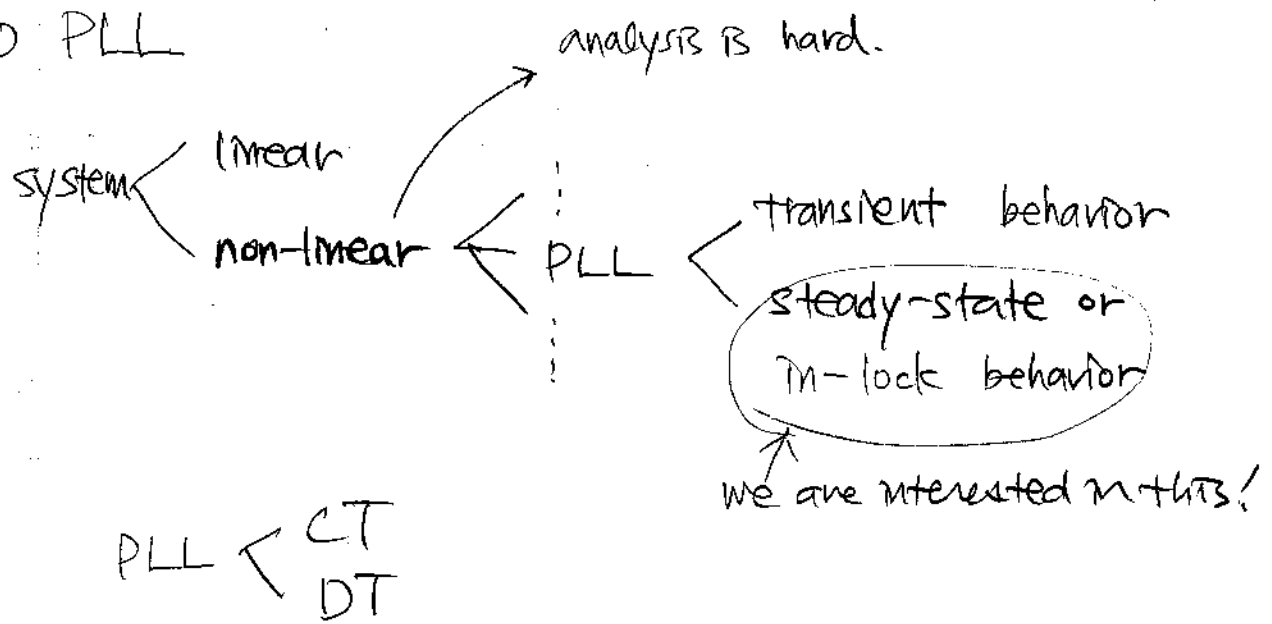 PLL
analysis is hard.
system
linear
non-linear
PLL
transient behavior
steady-state or
in-lock behavior
we are interested in this!
PLL
CT
DT